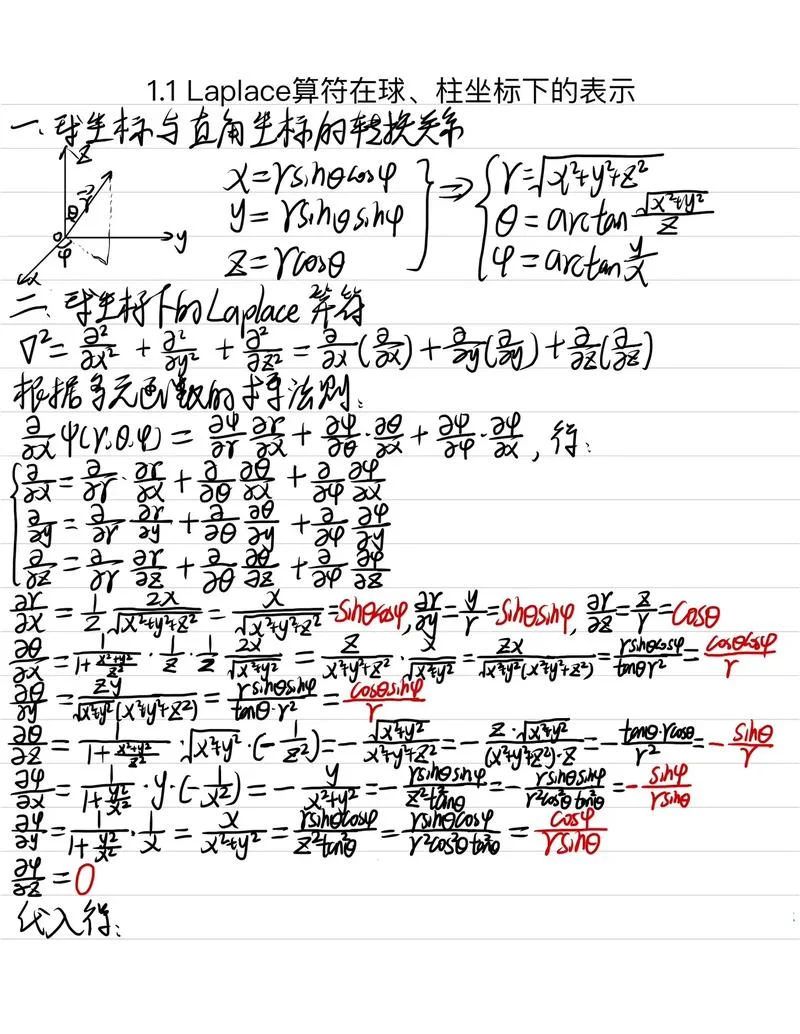 1.1 Laplace算符在球、柱坐标下的表示
一.球坐标与直角坐标的转换关系
z
θ r⃗
o y
φ
x
x=rsinθcosφ
y=rsinθsinφ
z=rcosθ
} ⇒ {
r=√(x²+y²+z²)
θ=arctan √(x²+y²)/z
φ=arctan y/x
二.球坐标下的Laplace算符
∇²= ∂²/∂x² + ∂²/∂y² + ∂²/∂z² = ∂/∂x(∂/∂x)+ ∂/∂y(∂/∂y)+ ∂/∂z(∂/∂z)
根据多元函数的求导法则:
∂/∂x ψ(r,θ,φ) = ∂ψ/∂r ∂r/∂x + ∂ψ/∂θ·∂θ/∂x + ∂ψ/∂φ·∂φ/∂x , 得:
{ ∂/∂x = ∂/∂r · ∂r/∂x + ∂/∂θ ∂θ/∂x + ∂/∂φ ∂φ/∂x
∂/∂y = ∂/∂r ∂r/∂y + ∂/∂θ ∂θ/∂y + ∂/∂φ ∂φ/∂y
∂/∂z = ∂/∂r ∂r/∂z + ∂/∂θ ∂θ/∂z + ∂/∂φ ∂φ/∂z
∂r/∂x = 1/2 2x/√(x²+y²+z²) = x/√(x²+y²+z²) = sinθcosφ, ∂r/∂y = y/r = sinθsinφ, ∂r/∂z = z/r = cosθ
∂θ/∂x = 1/(1+(x²+y²)/z²) · 1/z · 1/2 2x/√(x²+y²) = z/(x²+y²+z²) · x/√(x²+y²) = zx/(√(x²+y²)(x²+y²+z²)) = rsinθcosφ/(tanθ r²) = cosθcosφ/r
∂θ/∂y = zy/(√(x²+y²)(x²+y²+z²)) = rsinθsinφ/(tanθ·r²) = cosθsinφ/r
∂θ/∂z = 1/(1+(x²+y²)/z²) · √(x²+y²)·(-1/z²) = - √(x²+y²)/(x²+y²+z²) = - z·√(x²+y²)/((x²+y²+z²)·z) = - tanθ·rcosθ/r² = - sinθ/r
∂φ/∂x = 1/(1+y²/x²) · y·(-1/x²) = - y/(x²+y²) = - rsinθsinφ/(z²tan²θ) = - rsinθsinφ/(r²cos²θ tan²θ) = - sinφ/(rsinθ)
∂φ/∂y = 1/(1+y²/x²) · 1/x = x/(x²+y²) = rsinθcosφ/(z²tan²θ) = rsinθcosφ/(r²cos²θ tan²θ) = cosφ/(rsinθ)
∂φ/∂z = 0
代入得: